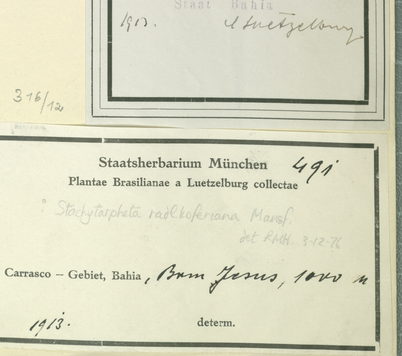 Staat Bahia
1913.
v Luetzelburg
316/12
Staatsherbarium München
491
Plantae Brasilianae a Luetzelburg collectae
Stachytarpheta radlkoferiana Mansf.
det RMH 3-12-76
Carrasco – Gebiet, Bahia, Bom Jesus, 1000 m
1913.
determ.